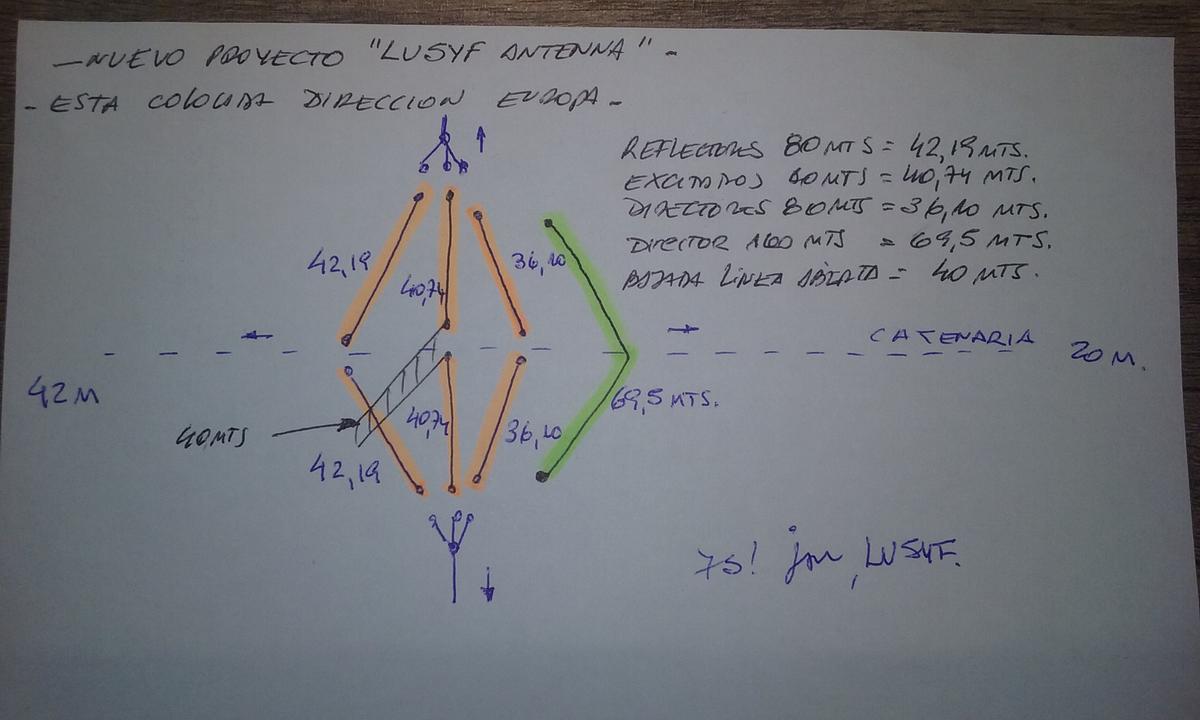 - NUEVO PROYECTO "LU5YF ANTENNA" -
- ESTA COLOCADA DIRECCION EUROPA -
REFLECTORES 80 MTS = 42,19 MTS.
EXCITADOS 80 MTS = 40,74 MTS.
DIRECTORES 80 MTS = 36,10 MTS.
DIRECTOR 160 MTS = 69,5 MTS.
BAJADA LINEA ABIERTA = 40 MTS.
42,19
40,74
36,10
CATENARIA
20 M.
42 M
69,5 MTS.
40 MTS
40,74
36,10
42,19
73! LU5YF.